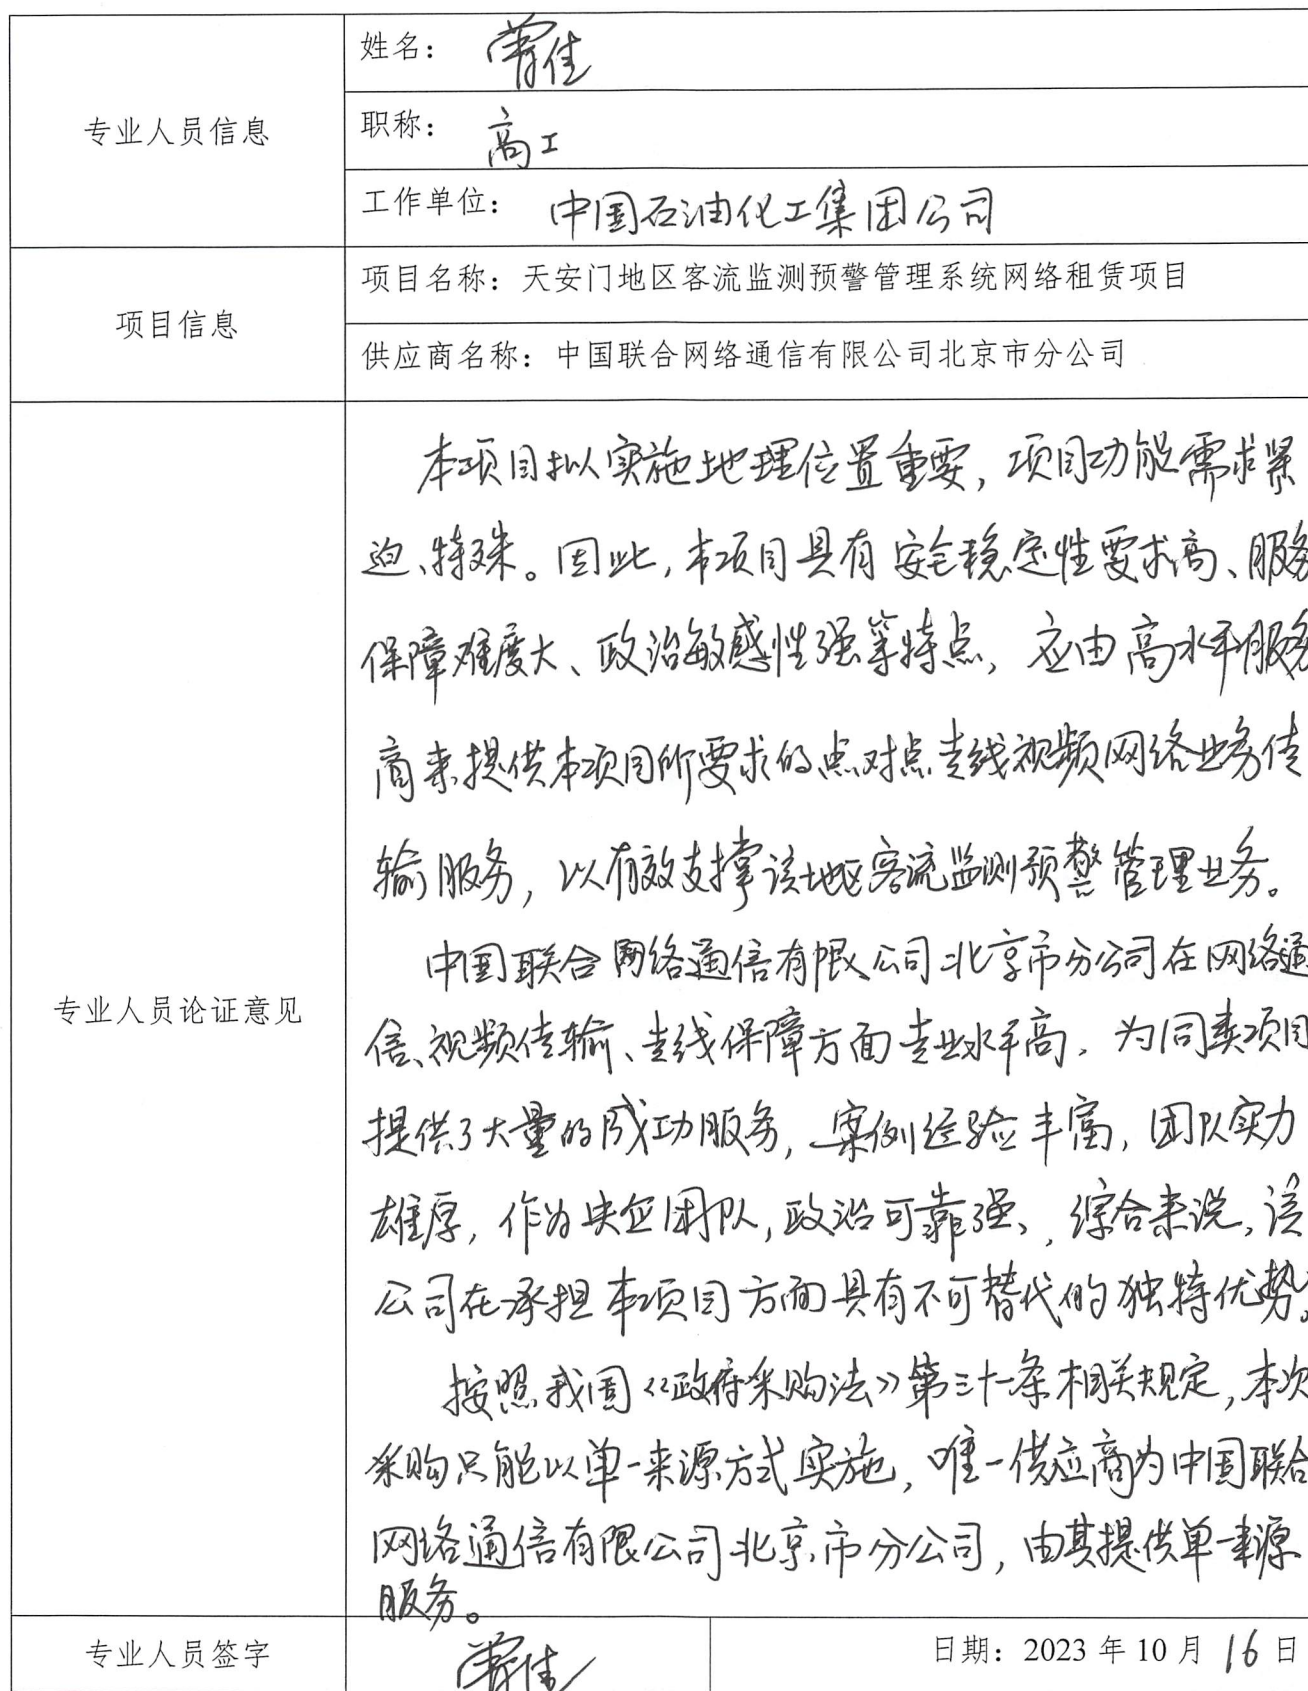 专业人员信息
姓名：
职称：高工
工作单位：中国石油化工集团公司
项目信息
项目名称：天安门地区客流监测预警管理系统网络租赁项目
供应商名称：中国联合网络通信有限公司北京市分公司
专业人员论证意见
本项目拟实施地理位置重要，项目功能需求紧
迫、特殊。因此，本项目具有安全稳定性要求高、服务
保障难度大、政治敏感性强等特点，应由高水平服务
商来提供本项目所要求的点对点专线视频网络业务传
输服务，以有效支撑该地区客流监测预警管理业务。
中国联合网络通信有限公司北京市分公司在网络通
信、视频传输、专线保障方面专业水平高，为同类项目
提供了大量的成功服务，案例经验丰富，团队实力
雄厚，作为央企团队，政治可靠强、，综合来说，该
公司在承担本项目方面具有不可替代的独特优势。
按照我国《政府采购法》第三十一条相关规定，本次
采购只能以单一来源方式实施，唯一供应商为中国联合
网络通信有限公司北京市分公司，由其提供单一来源
服务。
专业人员签字
日期：2023 年 10 月 16 日